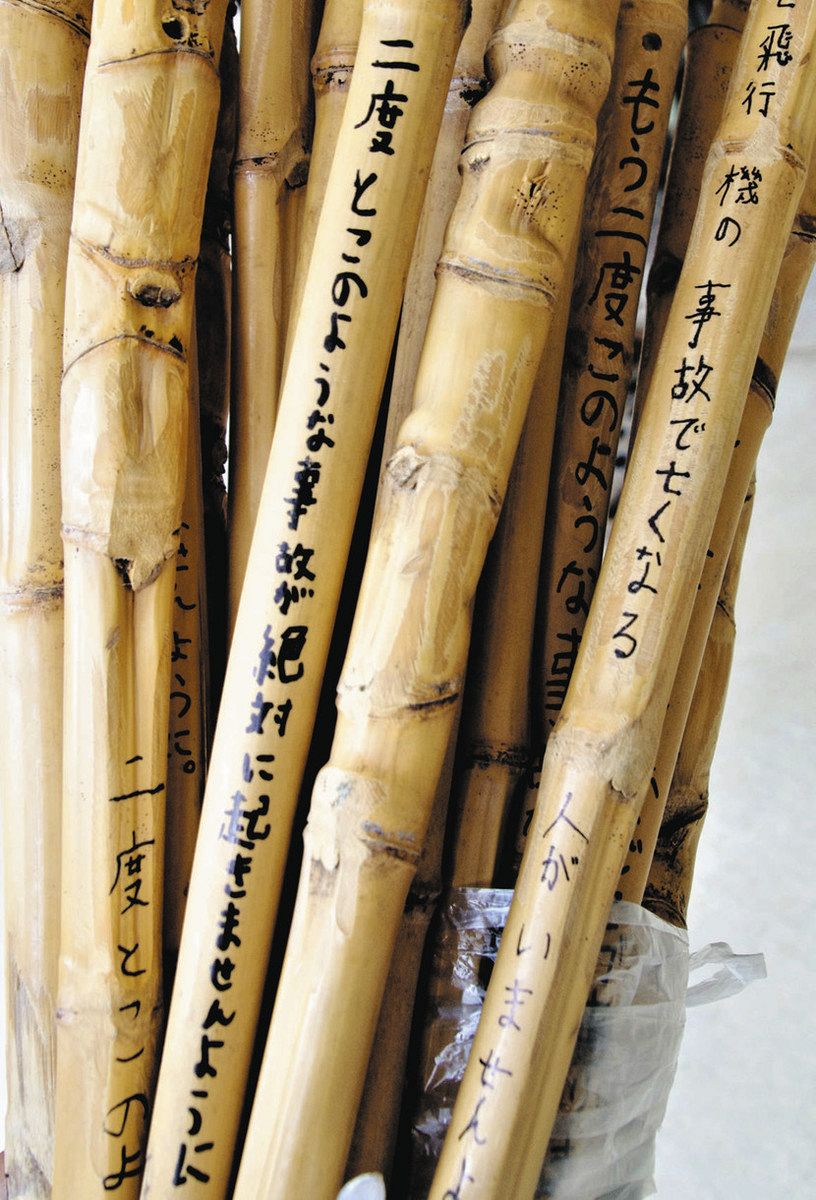 飛行機の事故で亡くなる人がいませんよ
もう二度このような事
二度とこのような事故が絶対に起きませんように
せんように。
二度とこのよ